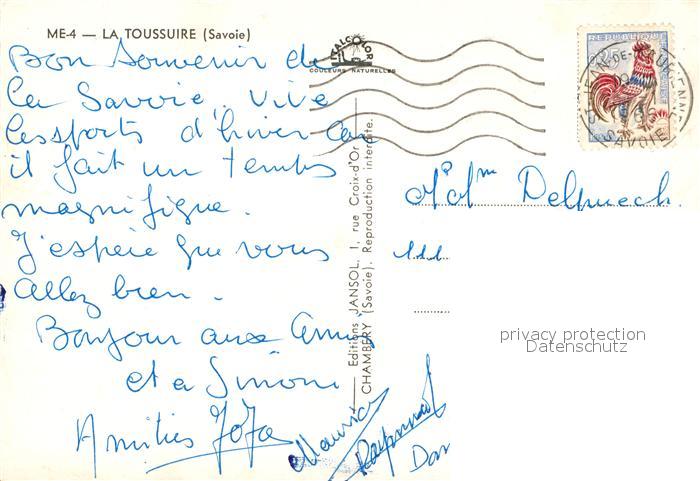 ME-4 — LA TOUSSUIRE (Savoie)
Bon Souvenir de
la Savoie, vive
les sports d'hiver car
il fait un temps
magnifique.
J'espère que vous
allez bien.
Bonjour aux Amis
et a Simone
Amitiés Jojo
Maurice
Raymond
Dan
ITALCOLOR
COULEURS NATURELLES
Editions JANSOL, 1, rue Croix-d'Or
CHAMBÉRY (Savoie). Reproduction interdite.
REPUBLIQUE
SAVOIE
M. Mme Delpuech
privacy protection
Datenschutz